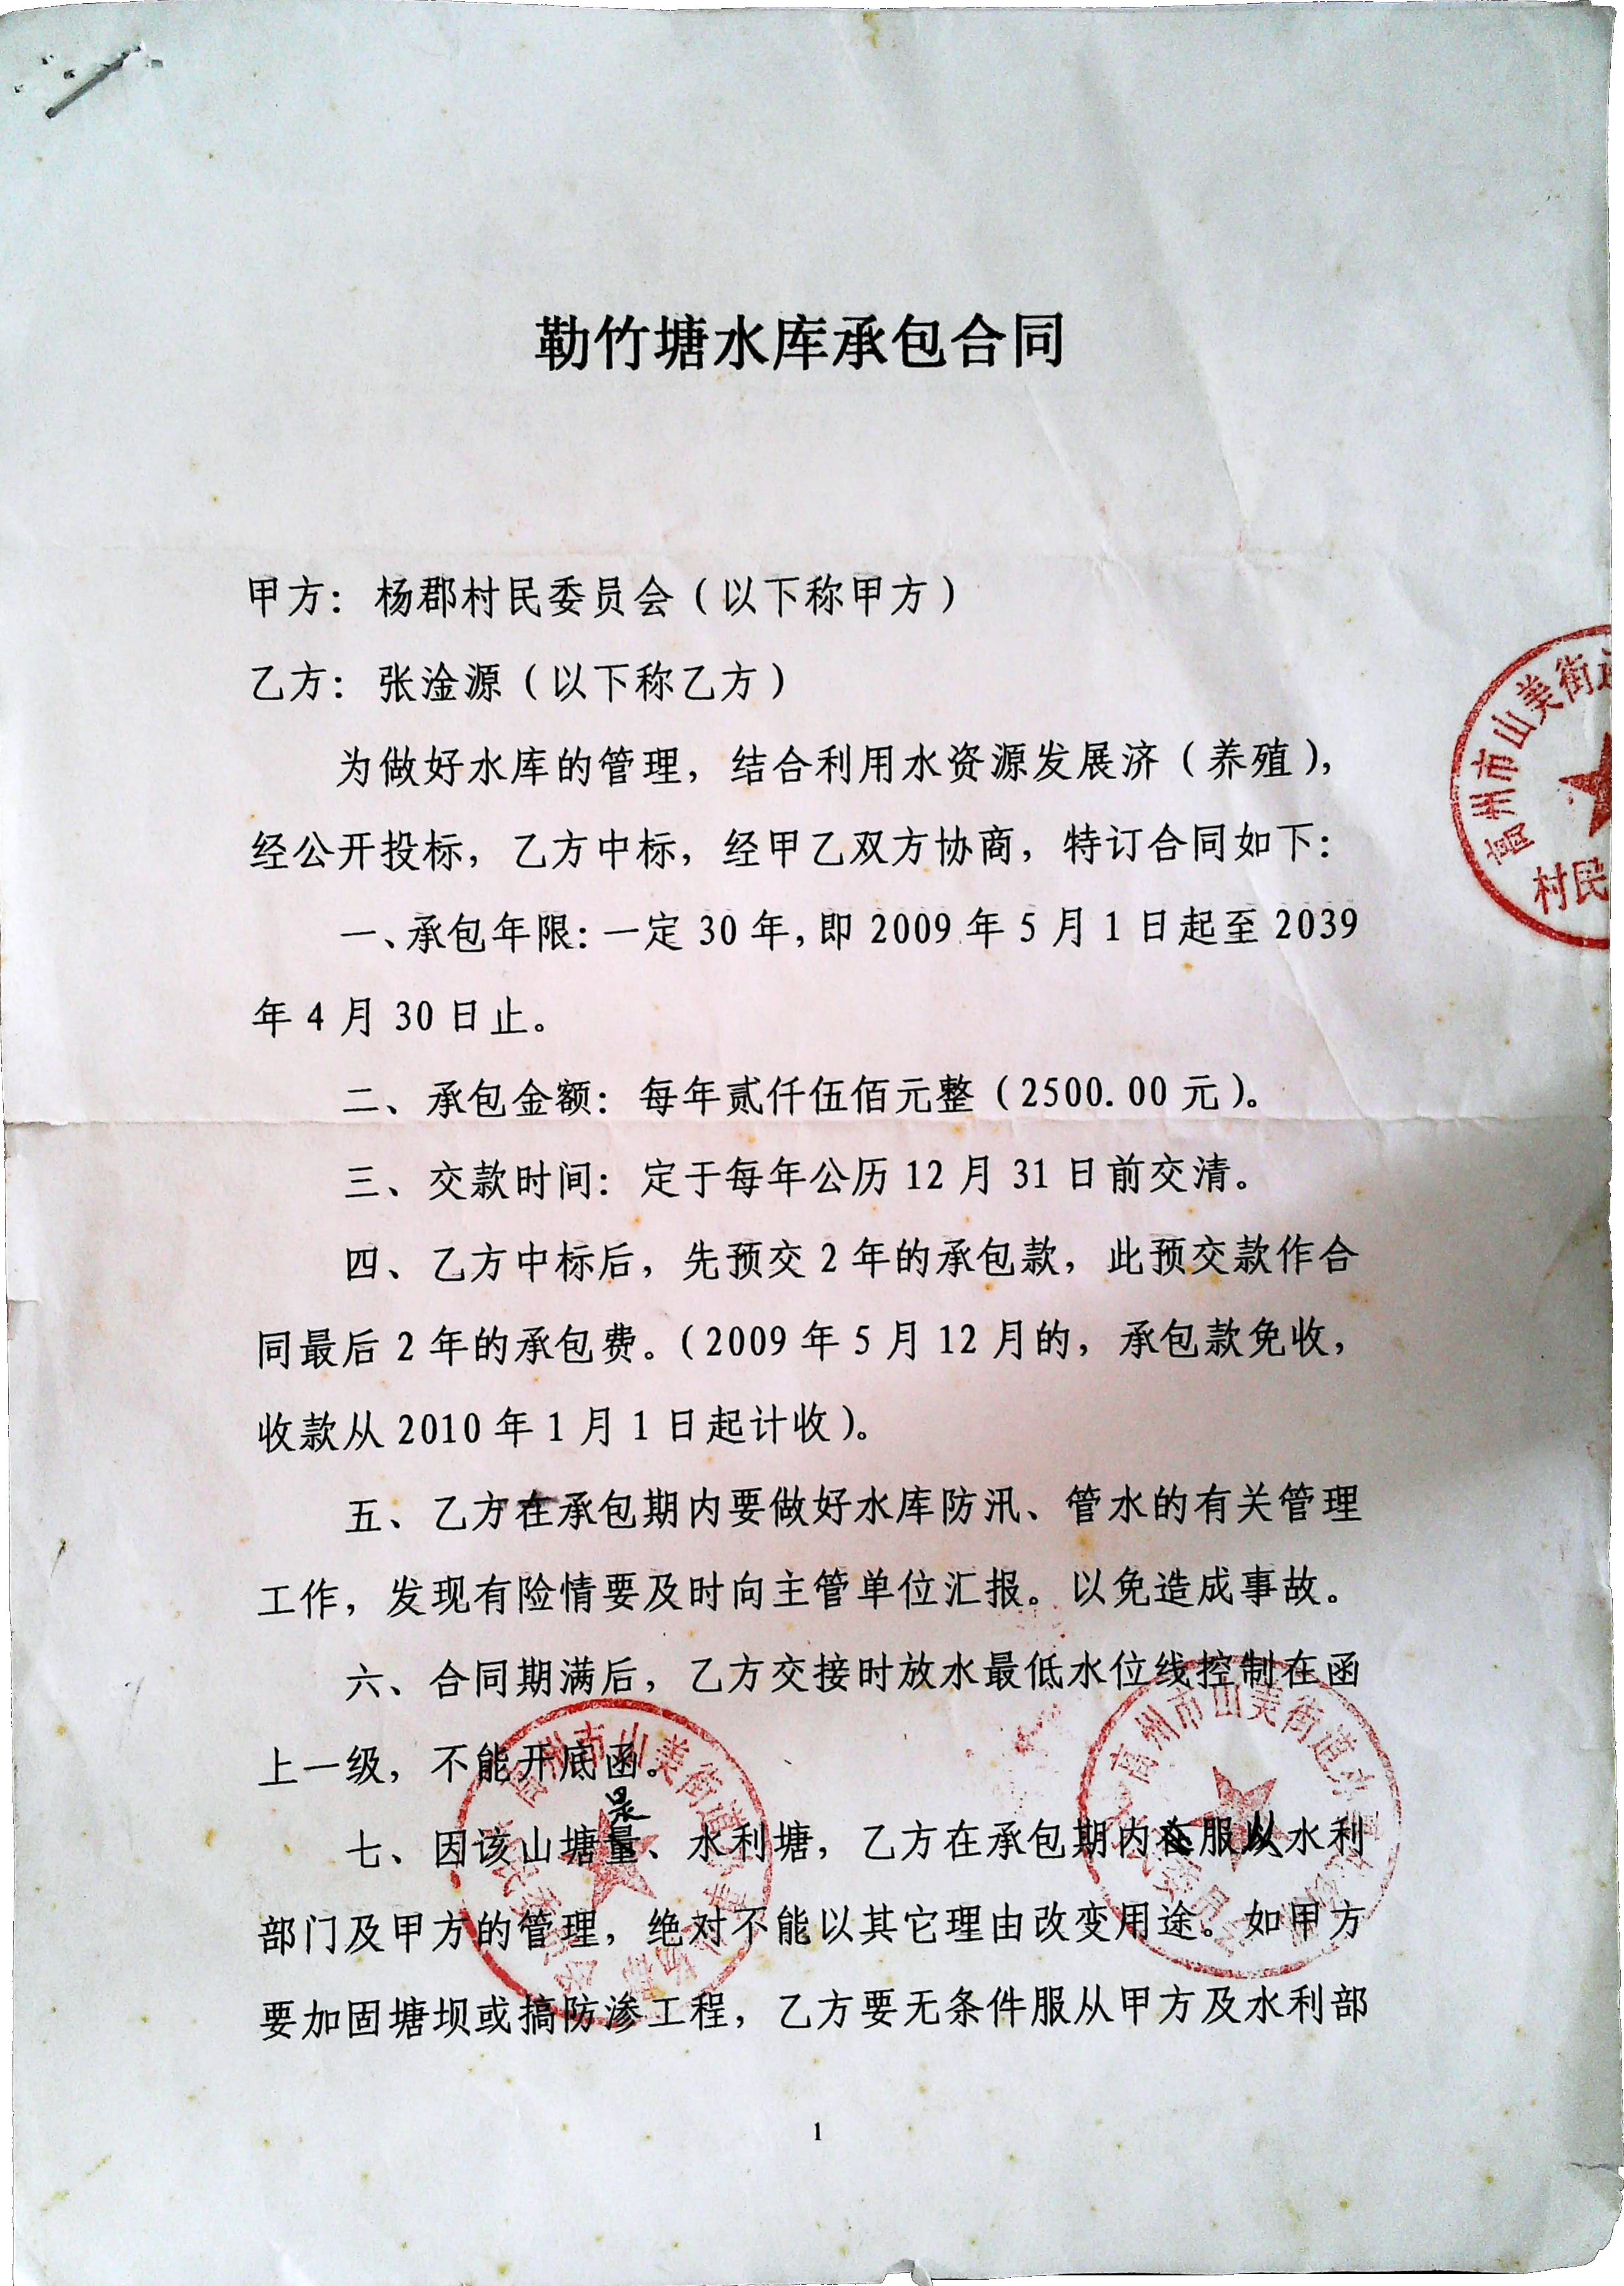 勒竹塘水库承包合同
甲方：杨郡村民委员会（以下称甲方）
乙方：张淦源（以下称乙方）
为做好水库的管理，结合利用水资源发展济（养殖），
经公开投标，乙方中标，经甲乙双方协商，特订合同如下：
一、承包年限：一定 30 年，即 2009 年 5 月 1 日起至 2039
年 4 月 30 日止。
二、承包金额：每年贰仟伍佰元整（2500.00 元）。
三、交款时间：定于每年公历 12 月 31 日前交清。
四、乙方中标后，先预交 2 年的承包款，此预交款作合
同最后 2 年的承包费。（2009 年 5 月 12 月的，承包款免收，
收款从 2010 年 1 月 1 日起计收）。
五、乙方在承包期内要做好水库防汛、管水的有关管理
工作，发现有险情要及时向主管单位汇报。以免造成事故。
六、合同期满后，乙方交接时放水最低水位线控制在函
上一级，不能开底函。
是
七、因该山塘量、水利塘，乙方在承包期内服从水利
部门及甲方的管理，绝对不能以其它理由改变用途。如甲方
要加固塘坝或搞防渗工程，乙方要无条件服从甲方及水利部
1
高州市山美街道
村民
高州市山美街道
高州市山美街道